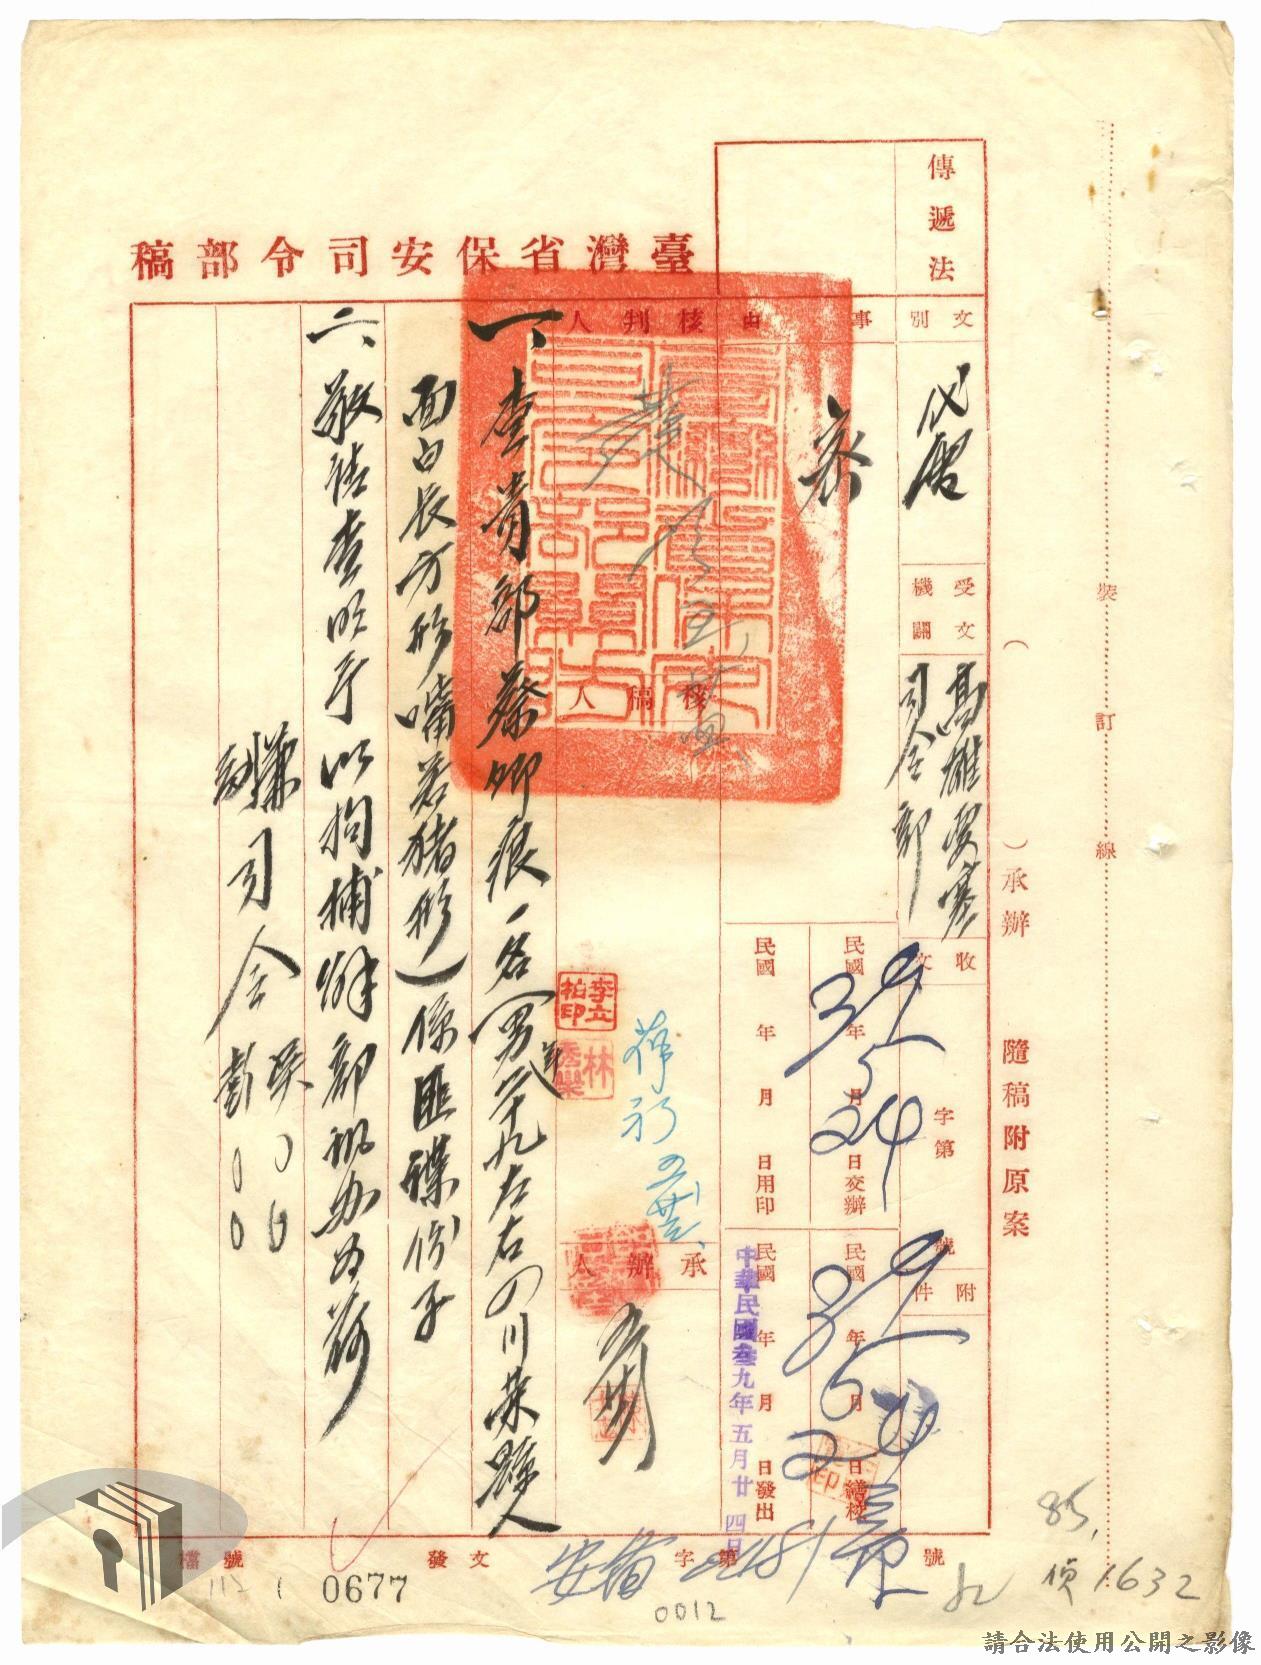 傳遞法
臺灣省保安司令部稿
文別
代電
受文機關
高雄要塞司令部
事由
核判人
核稿人
承辦人
收文
字第
號
附件
民國39年5月24日交辦
民國39年5月24日繕校
民國 年 月 日用印
民國 年 月 日發出
中華民國叁九年五月廿四日
李立柏印
一、查貴部蔡卿痕一名(男年廿九左右四川榮縣人
面白長方形嘴若豬形)係匪諜份子
二、敬請查明予以拘捕解部訊办為荷
兼司令吴00
副司令彭00
裝訂線
( )承辦 隨稿附原案
檔號
0677
發文
字第
號
安
0012
85.
偵1632
請合法使用公開之影像